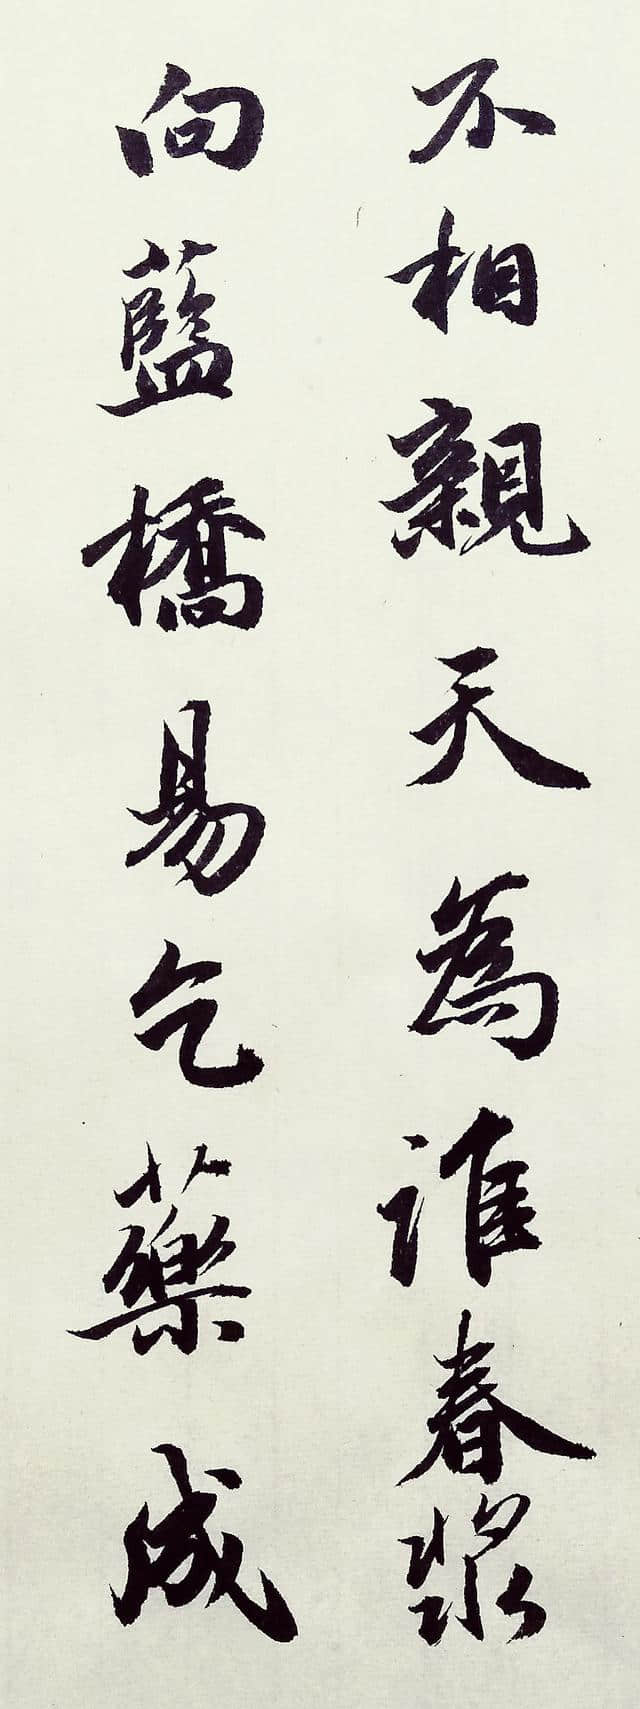 不相親天為誰春漿
向藍橋易乞藥成